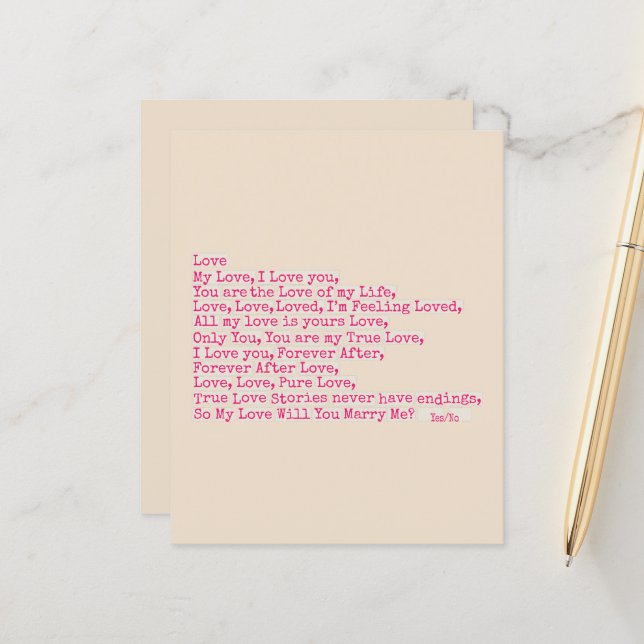 Love
My Love, I Love you,
You are the Love of my Life,
Love, Love, Loved, I'm Feeling Loved,
All my love is yours Love,
Only You, You are my True Love,
I Love you, Forever After,
Forever After Love,
Love, Love, Pure Love,
True Love Stories never have endings,
So My Love Will You Marry Me? Yes/No